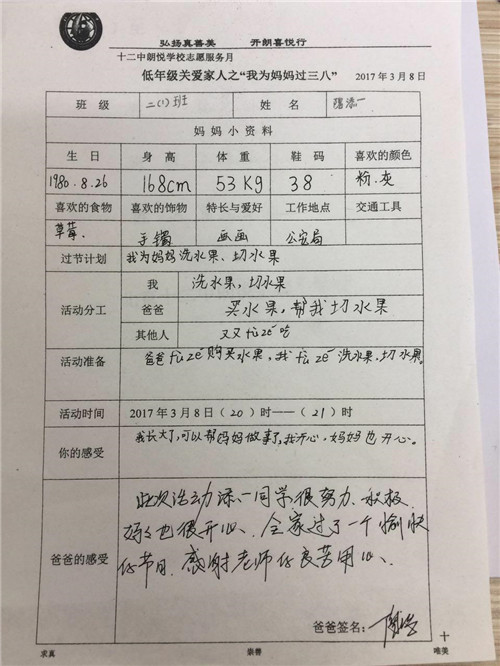 弘扬真善美 开朗喜悦行
十二中朗悦学校志愿服务月
低年级关爱家人之“我为妈妈过三八” 2017年3月8日
班级 二(1)班 姓名 添一
妈妈小资料
生日 身高 体重 鞋码 喜欢的颜色
1980.8.26 168cm 53Kg 38 粉.灰
喜欢的食物 喜欢的饰物 特长与爱好 工作地点 交通工具
草莓. 手镯 画画 公安局
过节计划 我为妈妈洗水果、切水果
活动分工 我 洗水果,切水果
爸爸 买水果,帮我切水果
其他人 又又fù zé吃
活动准备 爸爸fù zé购买水果,我fù zé洗水果、切水果。
活动时间 2017年3月8日(20)时——(21)时
你的感受 我长大了,可以帮妈妈做事了,我开心,妈妈也开心。
爸爸的感受 此次活动添一同学很努力、积极
妈妈也很开心、全家过了一个愉快
的节日、感谢老师的良苦用心、
爸爸签名:
求真 崇善 唯美